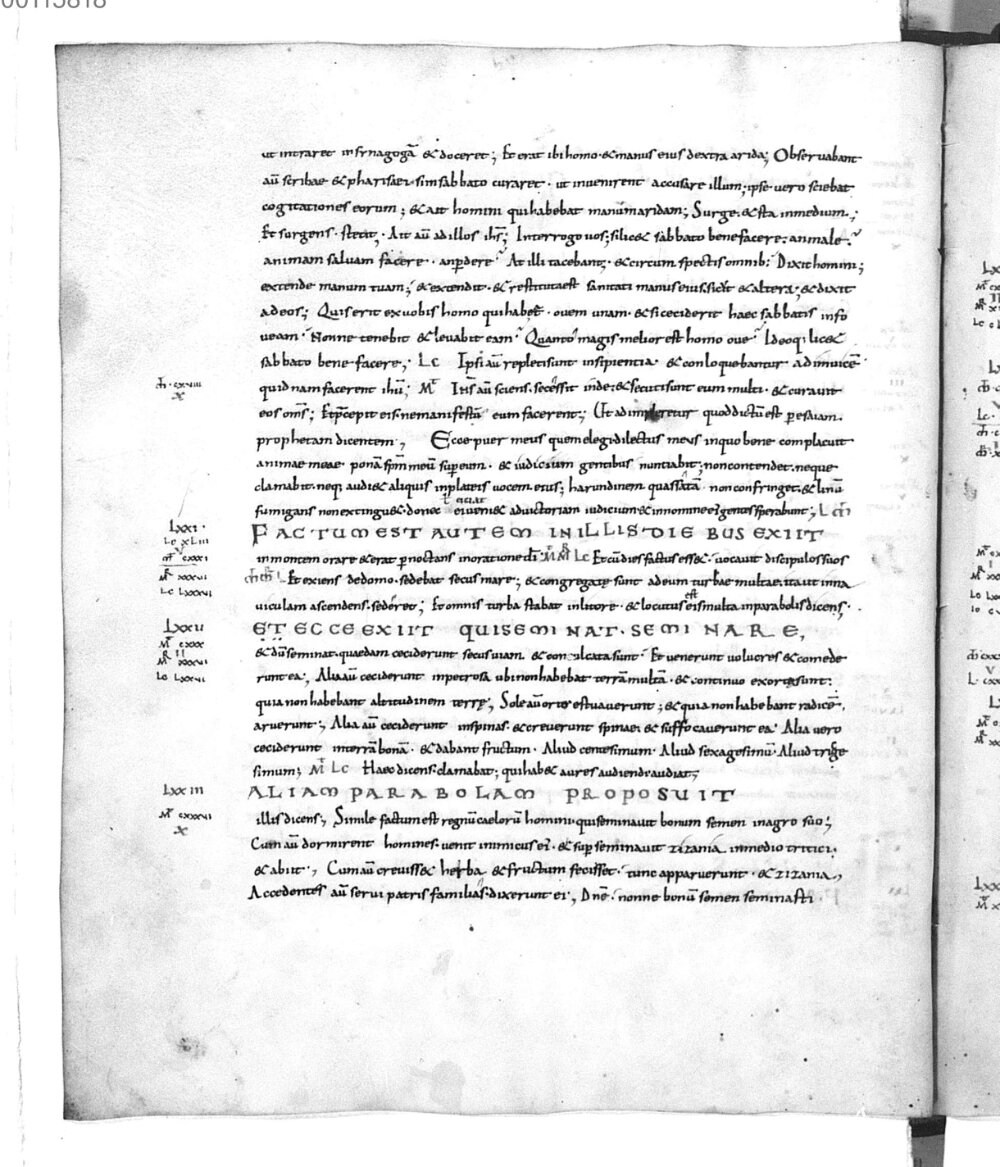 00113818
ut intraret in synagogā & doceret; Et erat ibi homo· & manus eius dextra arida; Observabant
aū scribae & pharisaei· si in sabbato curaret· ut invenirent accusare illum; ipse vero sciebat
cogitationes eorum; & ait homini qui habebat manū aridam; Surge· & sta in medium;
Et surgens· stetit; Ait aū ad illos ihs; Interrogo vos; si lic& sabbato bene facere· an male·
animam salvam facere· an perdere At illi tacebant; & circum spectis omnib; Dixit homini;
extende manum tuam; & extendit· & restituta est sanitati manus eius· sicut & altera; & dixit
ad eos; Quis erit ex vobis homo qui hab& ovem unam· & si ceciderit haec sabbatis in fo
veam Nonne tenebit & levabit eam Quanto magis melior est homo ove Ideoq; lic&
sabbato bene facere; Lc Ipsi aū repleti sunt insipientia & conloquebantur ad invicē
ιħ· cxviii
x
quid nam facerent ihū; Mt Ihs aū sciens· secessit inde· & secuti sunt eum multi· & curavit
eos oms; Et p̄cepit eis· ne manifestū eum facerent; Ut adimpleretur quod dictū est per esaiam·
prophetam dicentem; Ecce puer meus quem elegi dilectus meus in quo bene complacuit
animae meae· ponā spm meū super eum· & iudicium gentibus nuntiabit; non contendet· neque
clamabit· neq; audi& aliquis in plateis vocem eius; harundinem quassatam non confringet· & linū
fumigans non extingu&· donec eiciat ad victoriam iudicium & in nomine ei gentes sperabunt;
Lxxi·
FACTUM EST AUTEM IN ILLIS DIEBUS EXIIT
Lc xLiii
in montem orare & erat pernoctans in oratione di Lc Et cū dies factus ess&· vocavit discipulos suos
Mr xxxvi
Et exiens de domo· sedebat secus mare; & congregatę sunt ad eum turbae multae· ita ut in na
Lc Lxxvi
viculam ascendens· seder&; Et omnis turba stabat in litore· & locutus est eis multa in parabolis dicens·
Lxxii
ET ECCE EXIIT QUI SEMINAT· SEMINARE,
Mt cxxx
& dū seminat· quaedam ceciderunt secus viam· & conculcata sunt· Et venerunt volucres & comede
Mr xxxvi
Lc Lxxvi
runt ea; Alia aū ceciderunt in petrosa ubi non habebat terrā multā· & continuo exorta sunt·
quia non habebant altitudinem terrę; Sole aū orto estuaverunt; & quia non habebant radicē·
aruerunt; Alia aū ceciderunt in spinas· & creverunt spinae· & suffocaverunt ea· Alia vero
ceciderunt in terrā bonā· & dabant fructum· Aliud centesimum· Aliud sexagesimū· Aliud trige
simum; Mt Lc Haec dicens· clamabat; qui hab& aures audiendi audiat;
Lxxiii
ALIAM PARABOLAM PROPOSUIT
Mt cxxxvi
x
illis dicens; Simile factum est regnū caelorū homini· qui seminavit bonum semen in agro suo;
Cum aū dormirent homines· venit inimicus ei· & super seminavit zizania in medio tritici·
& abiit; Cum aū creviss& herba & fructum fecisset· tunc apparuerunt· & zizania;
Accedentes aū servi patris familias· dixerunt ei; Dne· nonne bonū semen seminasti